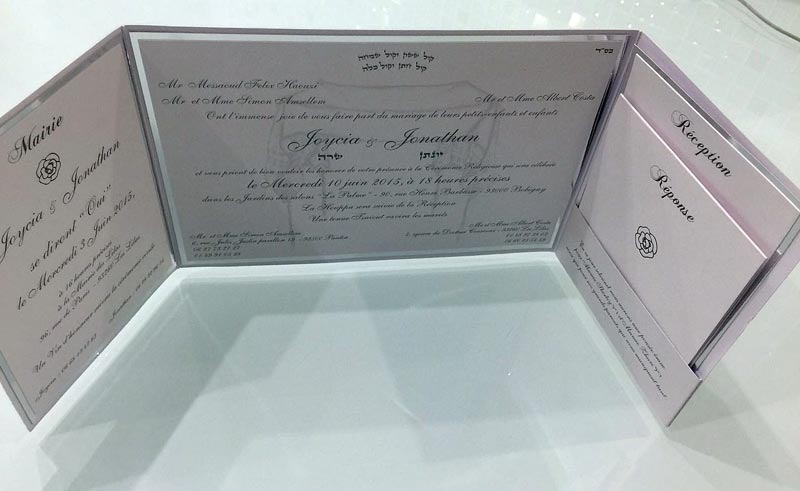 Mairie
Joycia & Jonathan
se diront "Oui"
le Mercredi 3 Juin 2015,
à 16 heures précises
à la Mairie des Lilas
96, rue de Paris - 93260 Les Lilas
Un Vin d'honneur suivra la cérémonie
Joycia : Jonathan :
בס"ד
קול ששון וקול שמחה
קול חתן וקול כלה
Mr Messaoud Felix Haouzi
Mr et Mme Simon Amsellem Mr et Mme Albert Costa
Ont l'immense joie de vous faire part du mariage de leurs petits-enfants et enfants
Joycia & Jonathan
שרה יונתן
et vous prient de bien vouloir les honorer de votre présence à la Cérémonie Religieuse qui sera célébrée
le Mercredi 10 juin 2015, à 18 heures précises
dans les Jardins des salons "La Palme" - 90, rue Henri Barbusse - 93000 Bobigny
La Houppa sera suivie de la Réception
Une tenue Tsniout ravira les mariés
Mr et Mme Simon Amsellem Mr et Mme Albert Costa
6, rue Jules Jaslin pavillon 19 - 93500 Pantin square du Docteur - 93260 Les Lilas
Réception
Réponse